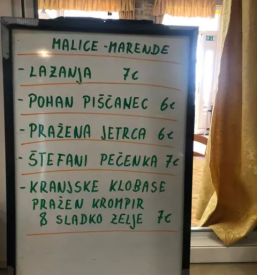 MALICE - MARENDE
- LAZANJA 7€
- POHAN PIŠČANEC 6€
- PRAŽENA JETRCA 6€
- ŠTEFANI PEČENKA 7€
- KRANJSKE KLOBASE
PRAŽEN KROMPIR
& SLADKO ZELJE 7€